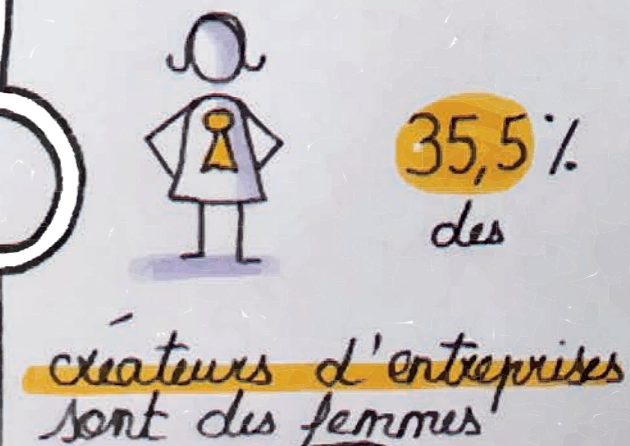 35,5 %
des
créateurs d'entreprises
sont des femmes